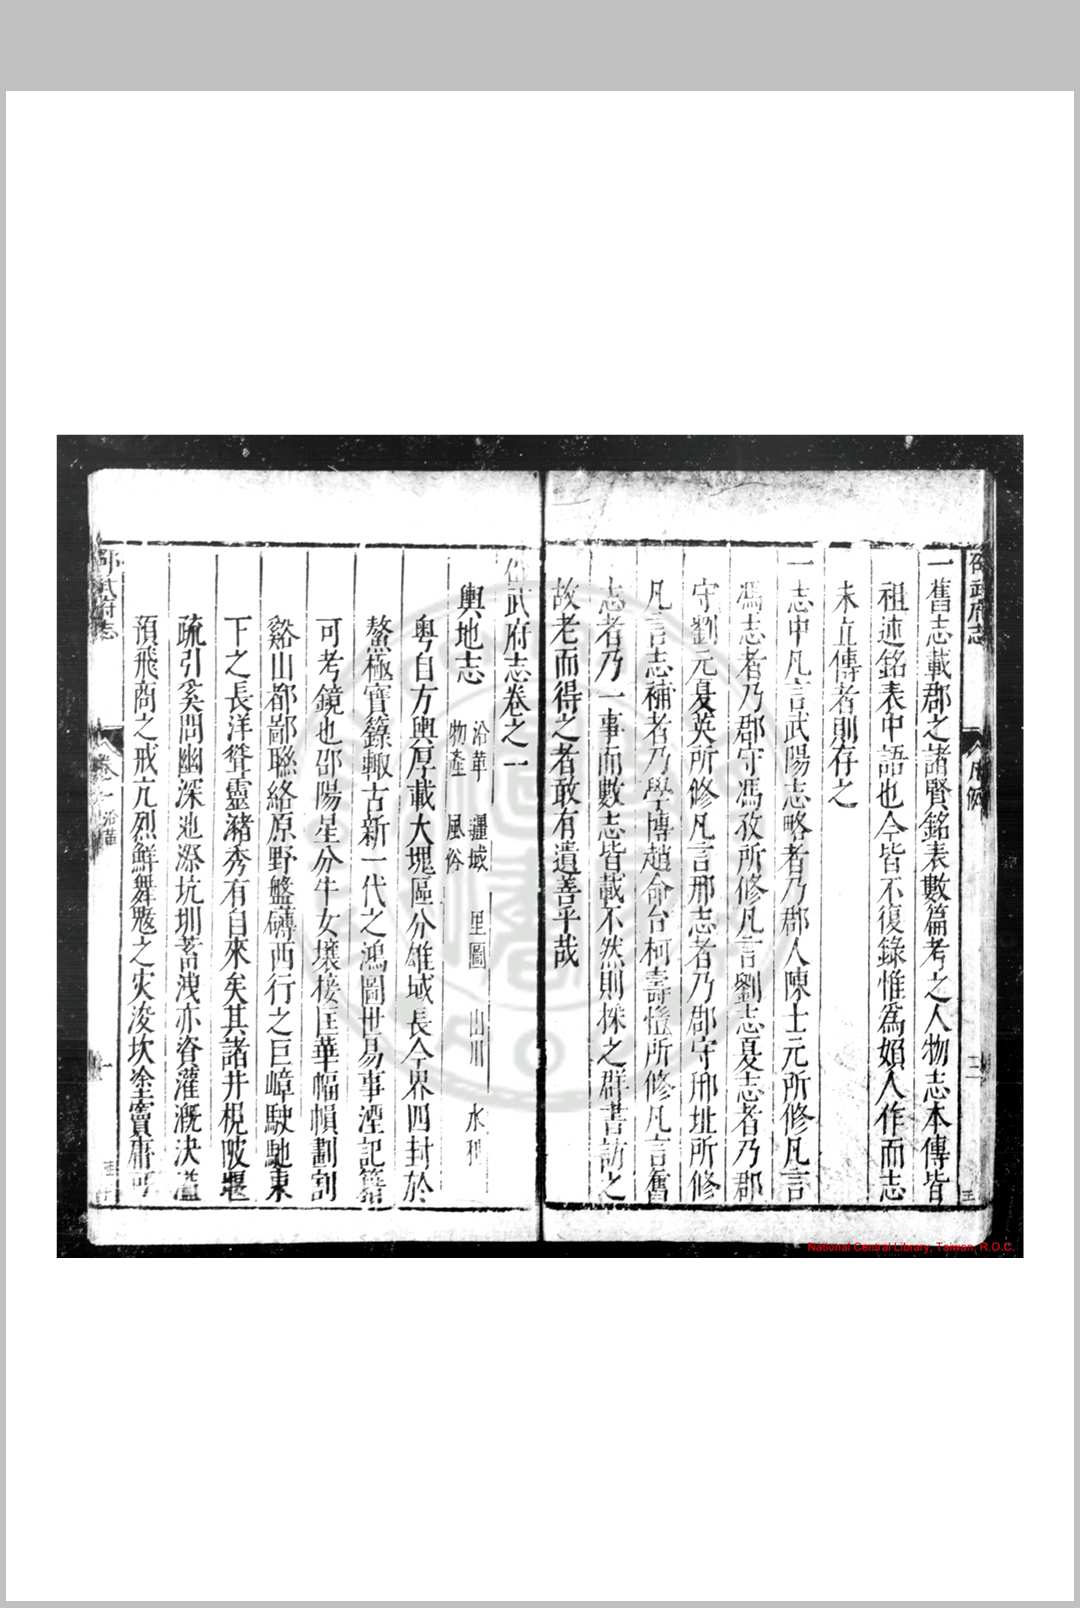 邵武府志
凡例
三
一舊志載郡之諸賢銘表數篇考之人物志本傳皆
祖述銘表中語也今皆不復錄惟爲婣人作而志
未立傳者則存之
一志中凡言武陽志略者乃郡人陳士元所修凡言
馮志者乃郡守馮孜所修凡言劉志夏志者乃郡
守劉元夏英所修凡言邢志者乃郡守邢址所修
凡言志補者乃學博趙命台柯壽愷所修凡言舊
志者乃一事而數志皆載不然則採之群書訪之
故老而得之者敢有遺善乎哉
邵武府志卷之一
輿地志
沿革 疆域 里圖 山川 水利
物產 風俗
粤自方輿厚載大塊區分雄城長令界四封於
鰲極寶籙輙古新一代之鴻圖世易事湮記籍
可考鏡也邵陽星分牛女壤接匡華幅幀劃割
谿山都鄙聮絡原野盤礴西行之巨嶂駛馳東
下之長洋聳靈瀦秀有自來矣其諸井梘陂堰
疏引奚問幽深池㵎坑圳蓄洩亦資灌漑决溢
預飛商之戒亢烈鮮舞魃之灾浚坎塗竇庸可
邵武府志
卷一 沿革
一
National Central Library, Taiwan, R.O.C.